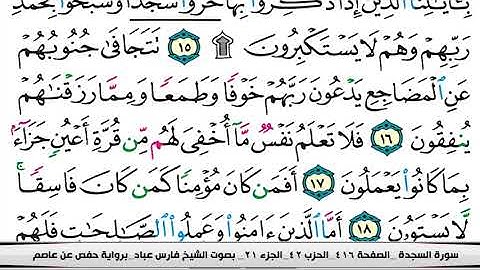 بِـَٔايَٰتِنَا ٱلَّذِينَ إِذَا ذُكِّرُوا۟ بِهَا خَرُّوا۟ سُجَّدًا وَسَبَّحُوا۟ بِحَمْدِ
رَبِّهِمْ وَهُمْ لَا يَسْتَكْبِرُونَ ۩ ١٥ تَتَجَافَىٰ جُنُوبُهُمْ
عَنِ ٱلْمَضَاجِعِ يَدْعُونَ رَبَّهُمْ خَوْفًا وَطَمَعًا وَمِمَّا رَزَقْنَٰهُمْ
يُنفِقُونَ ١٦ فَلَا تَعْلَمُ نَفْسٌ مَّآ أُخْفِىَ لَهُم مِّن قُرَّةِ أَعْيُنٍ جَزَآءًۢ
بِمَا كَانُوا۟ يَعْمَلُونَ ١٧ أَفَمَن كَانَ مُؤْمِنًا كَمَن كَانَ فَاسِقًا ۚ
لَّا يَسْتَوُۥنَ ١٨ أَمَّا ٱلَّذِينَ ءَامَنُوا۟ وَعَمِلُوا۟ ٱلصَّٰلِحَٰتِ فَلَهُمْ
سورة السجدة _ الصفحة ٤١٦ _ الحزب ٤٢ _ الجزء ٢١ _ بصوت الشيخ فارس عباد _ برواية حفص عن عاصم